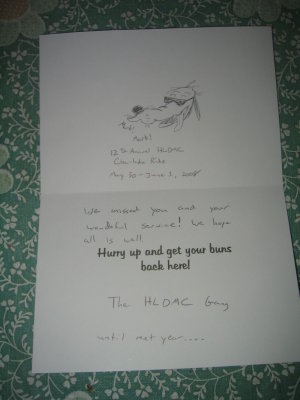 Mark!
12th Annual HLDMC
Clear Lake Ride
May 30 - June 1, 2008
We missed you and your
wonderful service! We hope
all is well
Hurry up and get your buns
back here!
The HLDMC Gang
until next year....